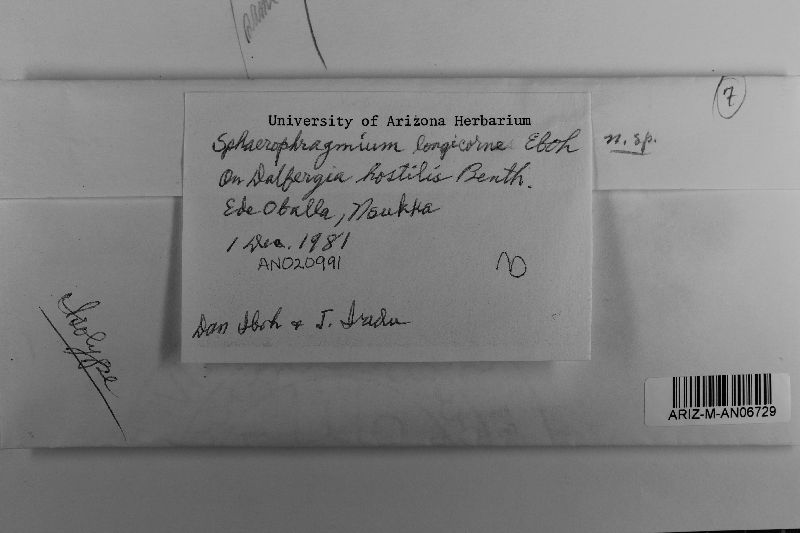 7
University of Arizona Herbarium
Sphaerophragmium longicorne Eboh n. sp.
On Dalbergia hostilis Benth.
Ede Oballa, Nsukka
1 Dec. 1981
AN020991
Dan Eboh &
Isotype
ARIZ-M-AN06729